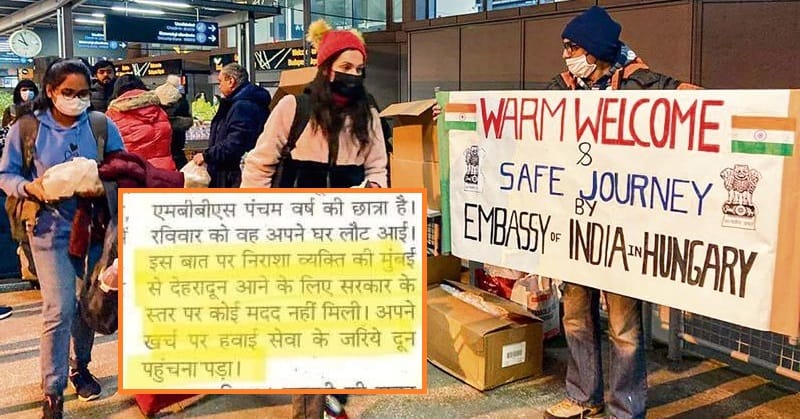 WARM WELCOME
&
SAFE JOURNEY
BY
EMBASSY OF INDIA IN HUNGARY
एमबीबीएस पंचम वर्ष की छात्रा है।
रविवार को वह अपने घर लौट आई।
इस बात पर निराशा व्यक्ति की मुंबई
से देहरादून आने के लिए सरकार के
स्तर पर कोई मदद नहीं मिली। अपने
खर्च पर हवाई सेवा के जरिये दून
पहुंचना पड़ा।